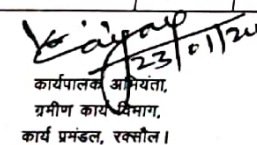 23/01/20
कार्यपालक अभियंता,
ग्रमीण कार्य विभाग,
कार्य प्रमंडल, रक्सौल।